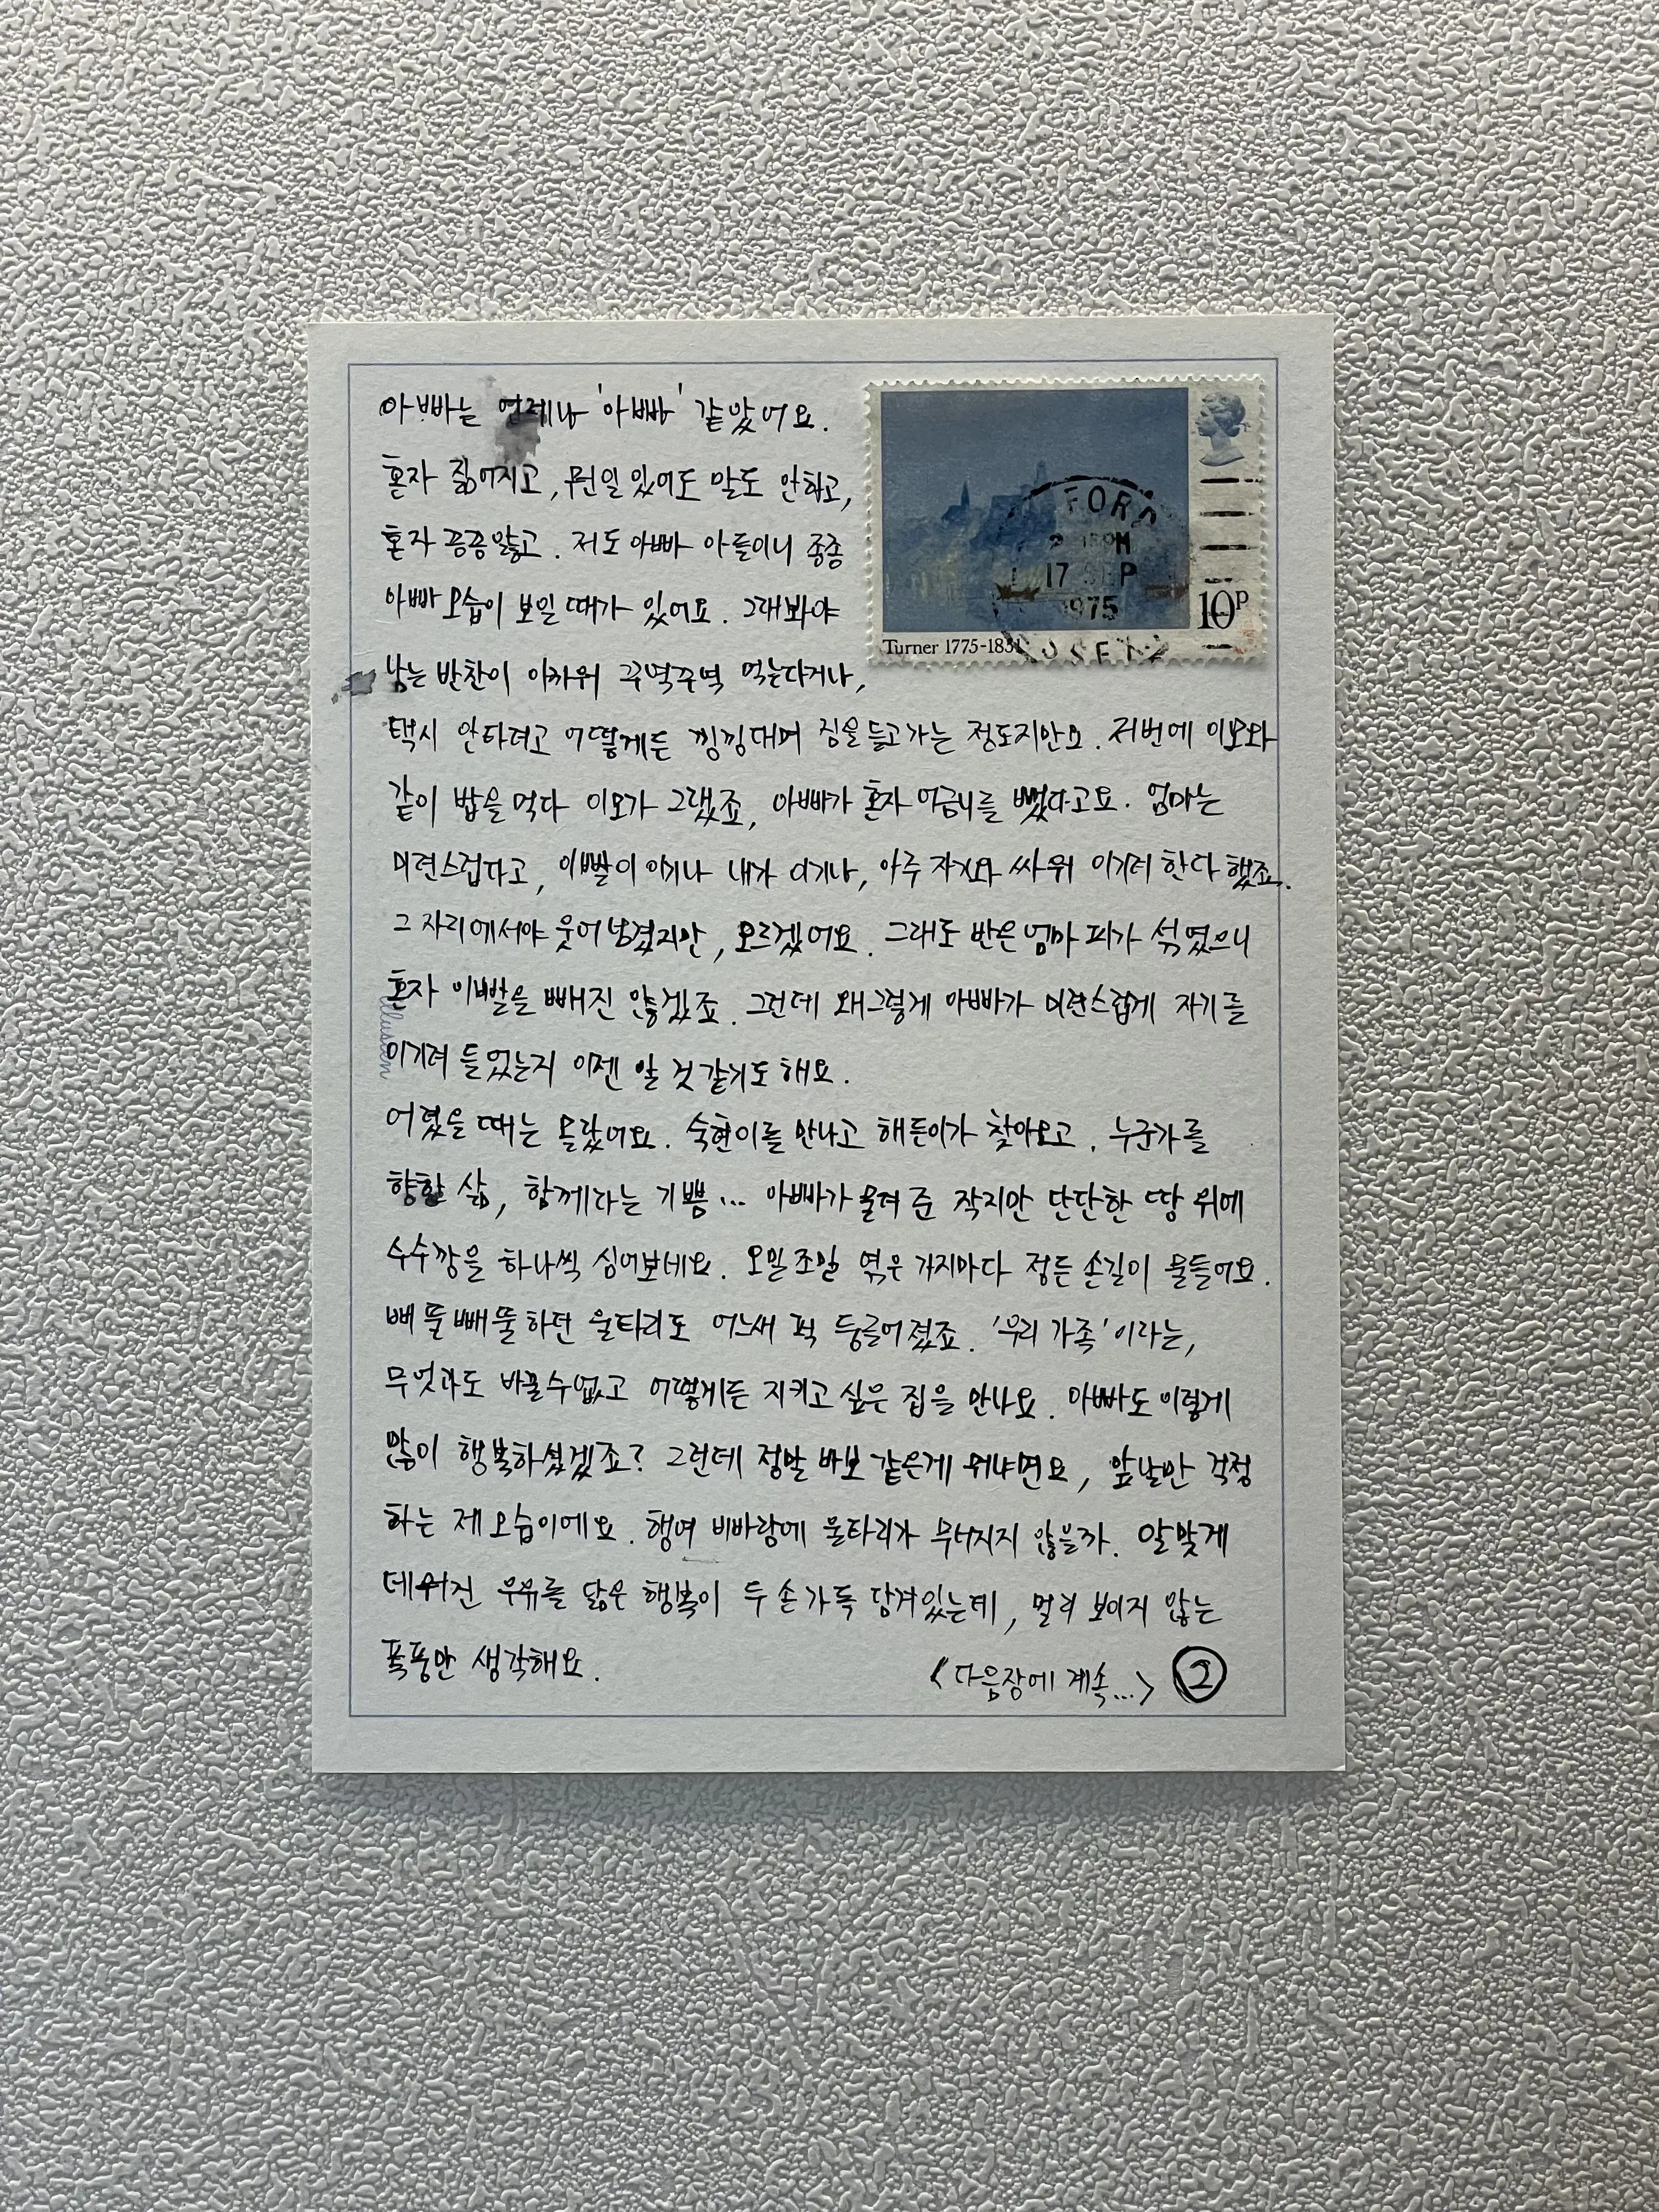 아빠는 언제나 '아빠' 같았어요.
혼자 짊어지고, 뭔일 있어도 말도 안하고,
혼자 끙끙앓고. 저도 아빠 아들이니 종종
아빠 모습이 보일 때가 있어요. 그래봐야
남는 반찬이 아까워 꾸역꾸역 먹는다거나,
택시 안타려고 어떻게든 낑낑대며 짐을 들고가는 정도지만요. 저번에 이모와
같이 밥을 먹다 이모가 그랬죠, 아빠가 혼자 어금니를 뺐다고요. 엄마는
미련스럽다고, 이빨이 이기나 내가 이기나, 아주 자기와 싸워 이기려 한다 했죠.
그 자리에서야 웃어넘겼지만, 모르겠어요. 그래도 반은 엄마 피가 섞였으니
혼자 이빨을 빼진 않겠죠. 그런데 왜그렇게 아빠가 미련스럽게 자기를
이기려 들었는지 이젠 알 것 같기도 해요.
어렸을 때는 몰랐어요. 숙현이를 만나고 해든이가 찾아오고. 누군가를
향한 삶, 함께라는 기쁨... 아빠가 물려 준 작지만 단단한 땅 위에
수수깡을 하나씩 심어보네요. 오밀조밀 엮은 가지마다 정든 손길이 물들어요.
삐뚤빼뚤하던 울타리도 어느새 퍽 둥글어졌죠. '우리 가족'이라는,
무엇과도 바꿀수없고 어떻게든 지키고 싶은 집을 만나요. 아빠도 이렇게
많이 행복하셨겠죠? 그런데 정말 바보 같은게 뭐냐면요, 앞날만 걱정
하는 제 모습이에요. 행여 비바람에 울타리가 무너지지 않을까. 알맞게
데워진 우유를 닮은 행복이 두 손 가득 담겨있는데, 멀리 보이지 않는
폭풍만 생각해요.
<다음장에 계속...> ②
FORD
17 SEP
1975
10P
Turner 1775-1851